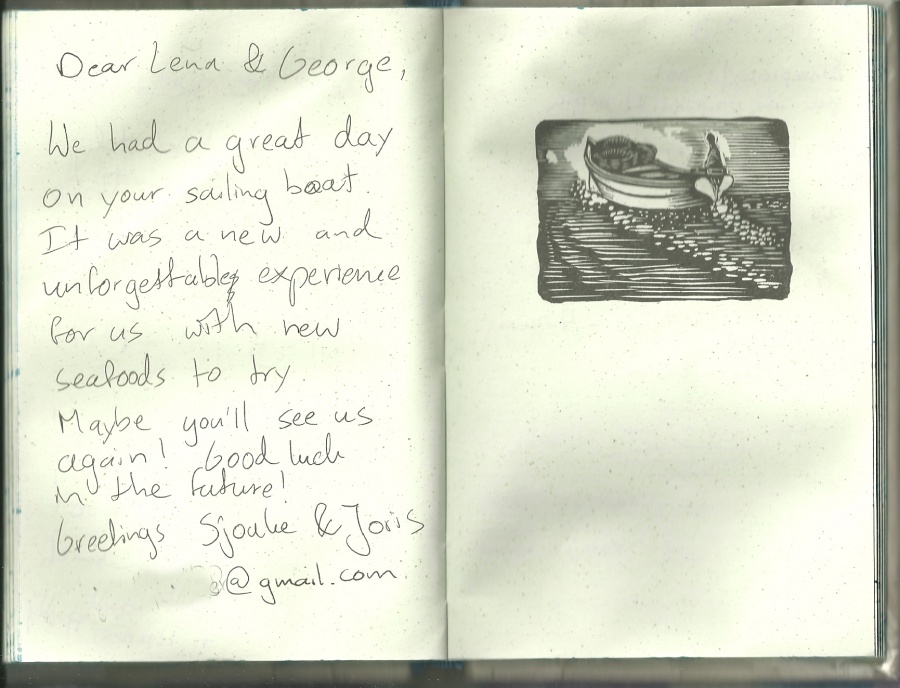 Dear Lena & George,
We had a great day
on your sailing boat.
It was a new and
unforgettable experience
for us with new
seafoods to try.
Maybe you'll see us
again! Good luck
in the future!
Greetings Sjouke & Joris
@gmail.com